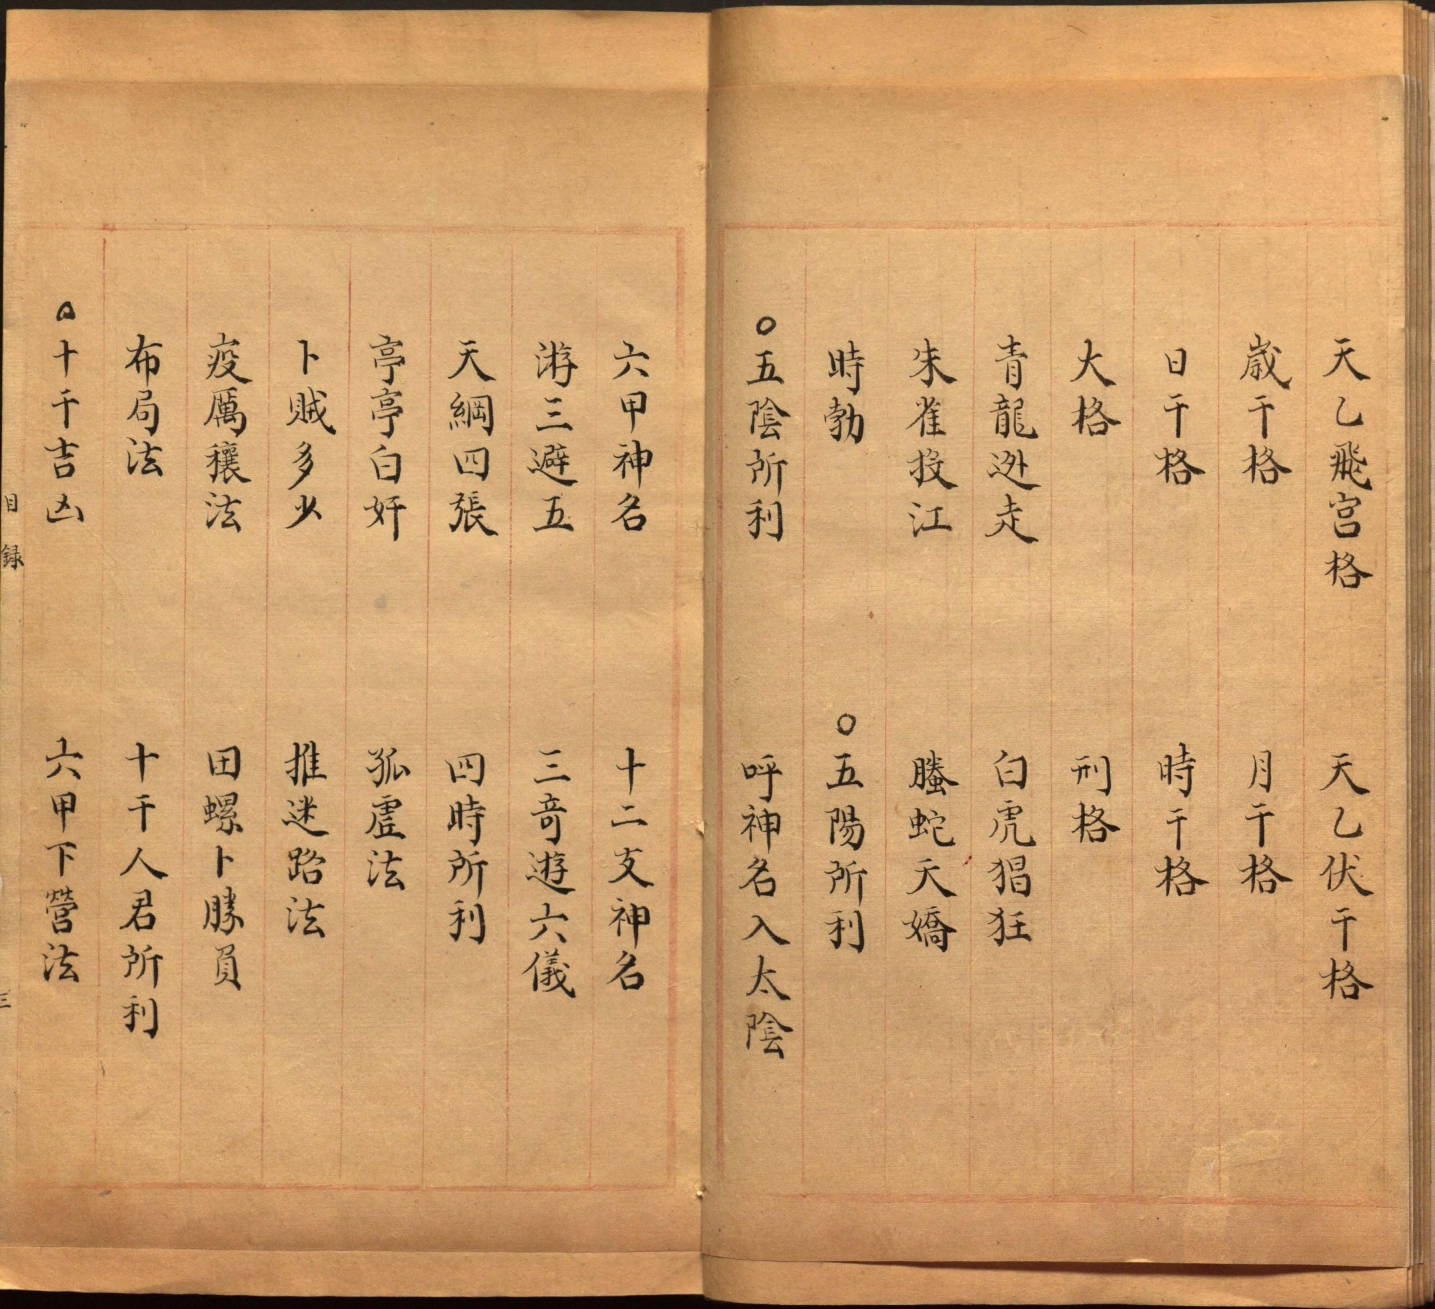 天乙飛宮格　天乙伏干格
歲干格　月干格
日干格　時干格
大格　刑格
青龍迯走　白虎猖狂
朱雀投江　螣蛇天嬌
時勃　○五陽所利
○五陰所利　呼神名入太陰
六甲神名　十二支神名
游三避五　三竒遊六儀
天綱四張　四時所利
亭亭白奸　孤虛法
卜賊多少　推迷路法
疫厲穰法　田螺卜勝負
布局法　十干人君所利
○十干吉凶　六甲下營法
目録
三